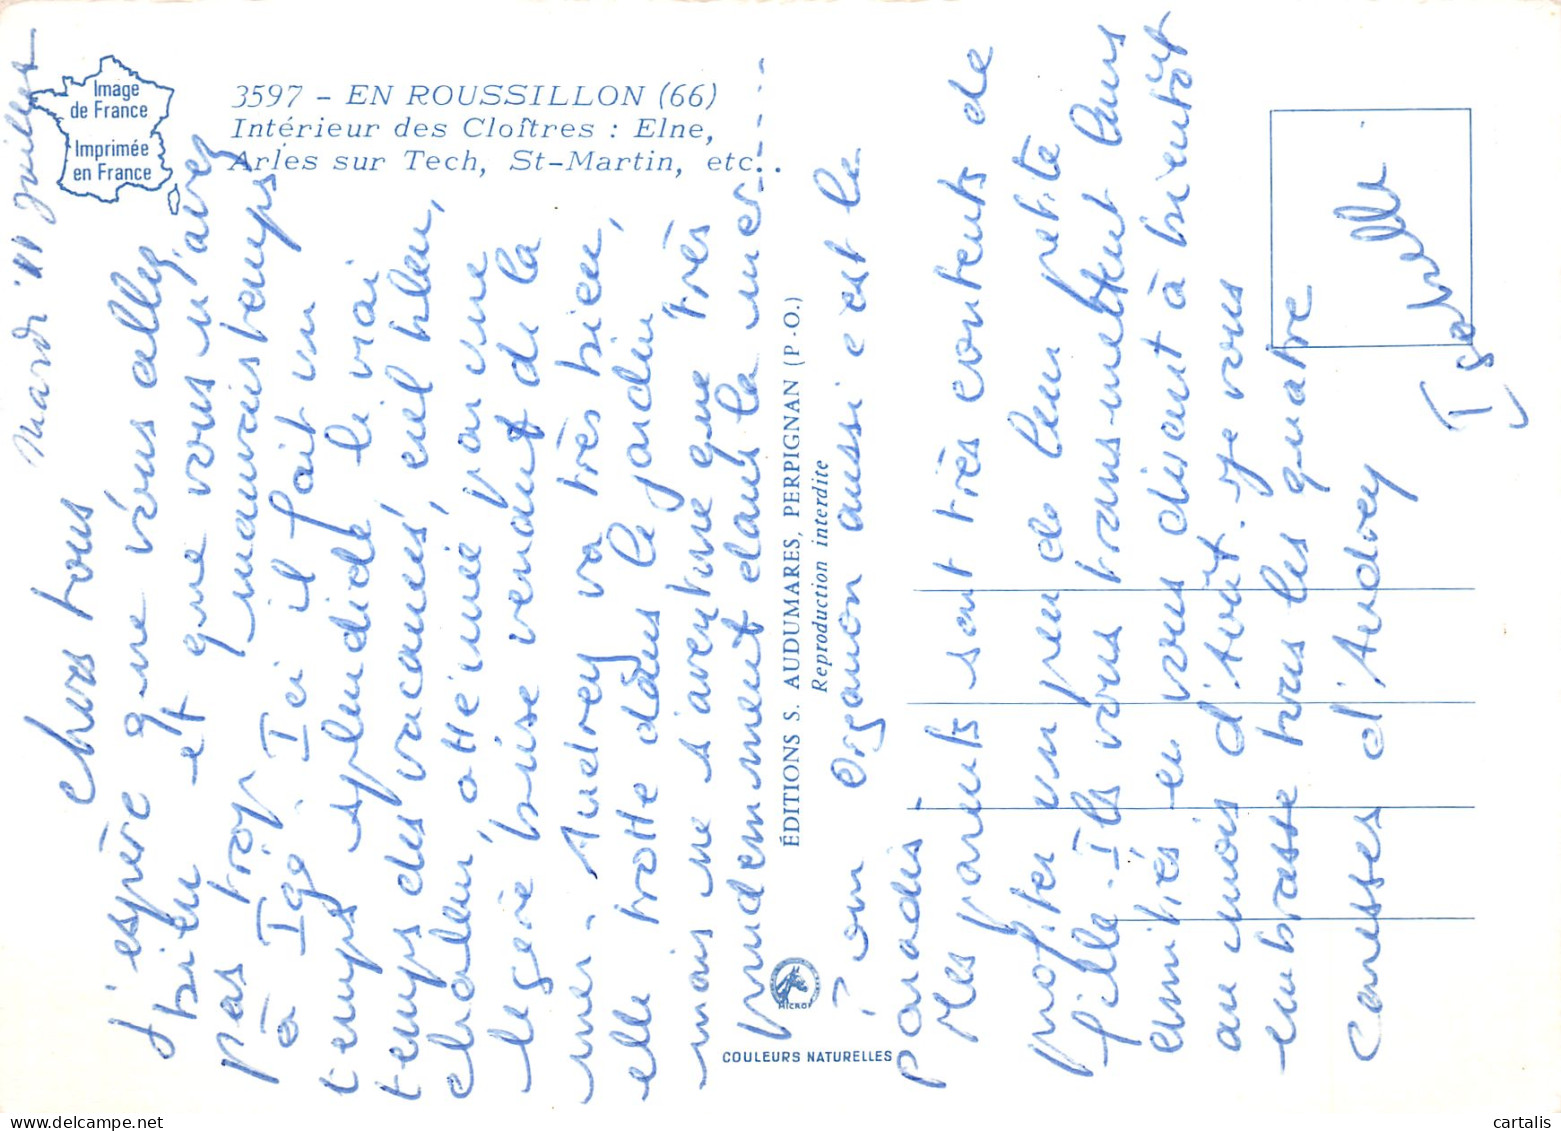 Image
de France
Imprimée
en France
3597 - EN ROUSSILLON (66)
Intérieur des Cloîtres : Elne,
Arles sur Tech, St-Martin, etc..
Mardi 11 Juillet
Chers tous
J'espère que vous allez
bien et que vous n'avez
pas trop mauvais temps
à Igé. Ici il fait un
temps splendide le vrai
temps des vacances, ciel bleu,
chaleur, atténué par une
légère brise venant de la
mer. Audrey va très bien,
elle trotte dans le jardin,
mais ne s'aventure que très
prudemment dans la mer ----
Pour Organon aussi c'est le
paradis
Mes parents sont très contents de
profiter un peu de leur petite
fille. Ils vous transmettent leurs
amitiés en vous disant à bientôt
au mois d'Août. Je vous
embrasse tous les quatre
Caresses d'Audrey
Isabelle
ÉDITIONS S. AUDUMARES, PERPIGNAN (P.-O.)
Reproduction interdite
MICRO
COULEURS NATURELLES
www.cartalis.com
cartalis